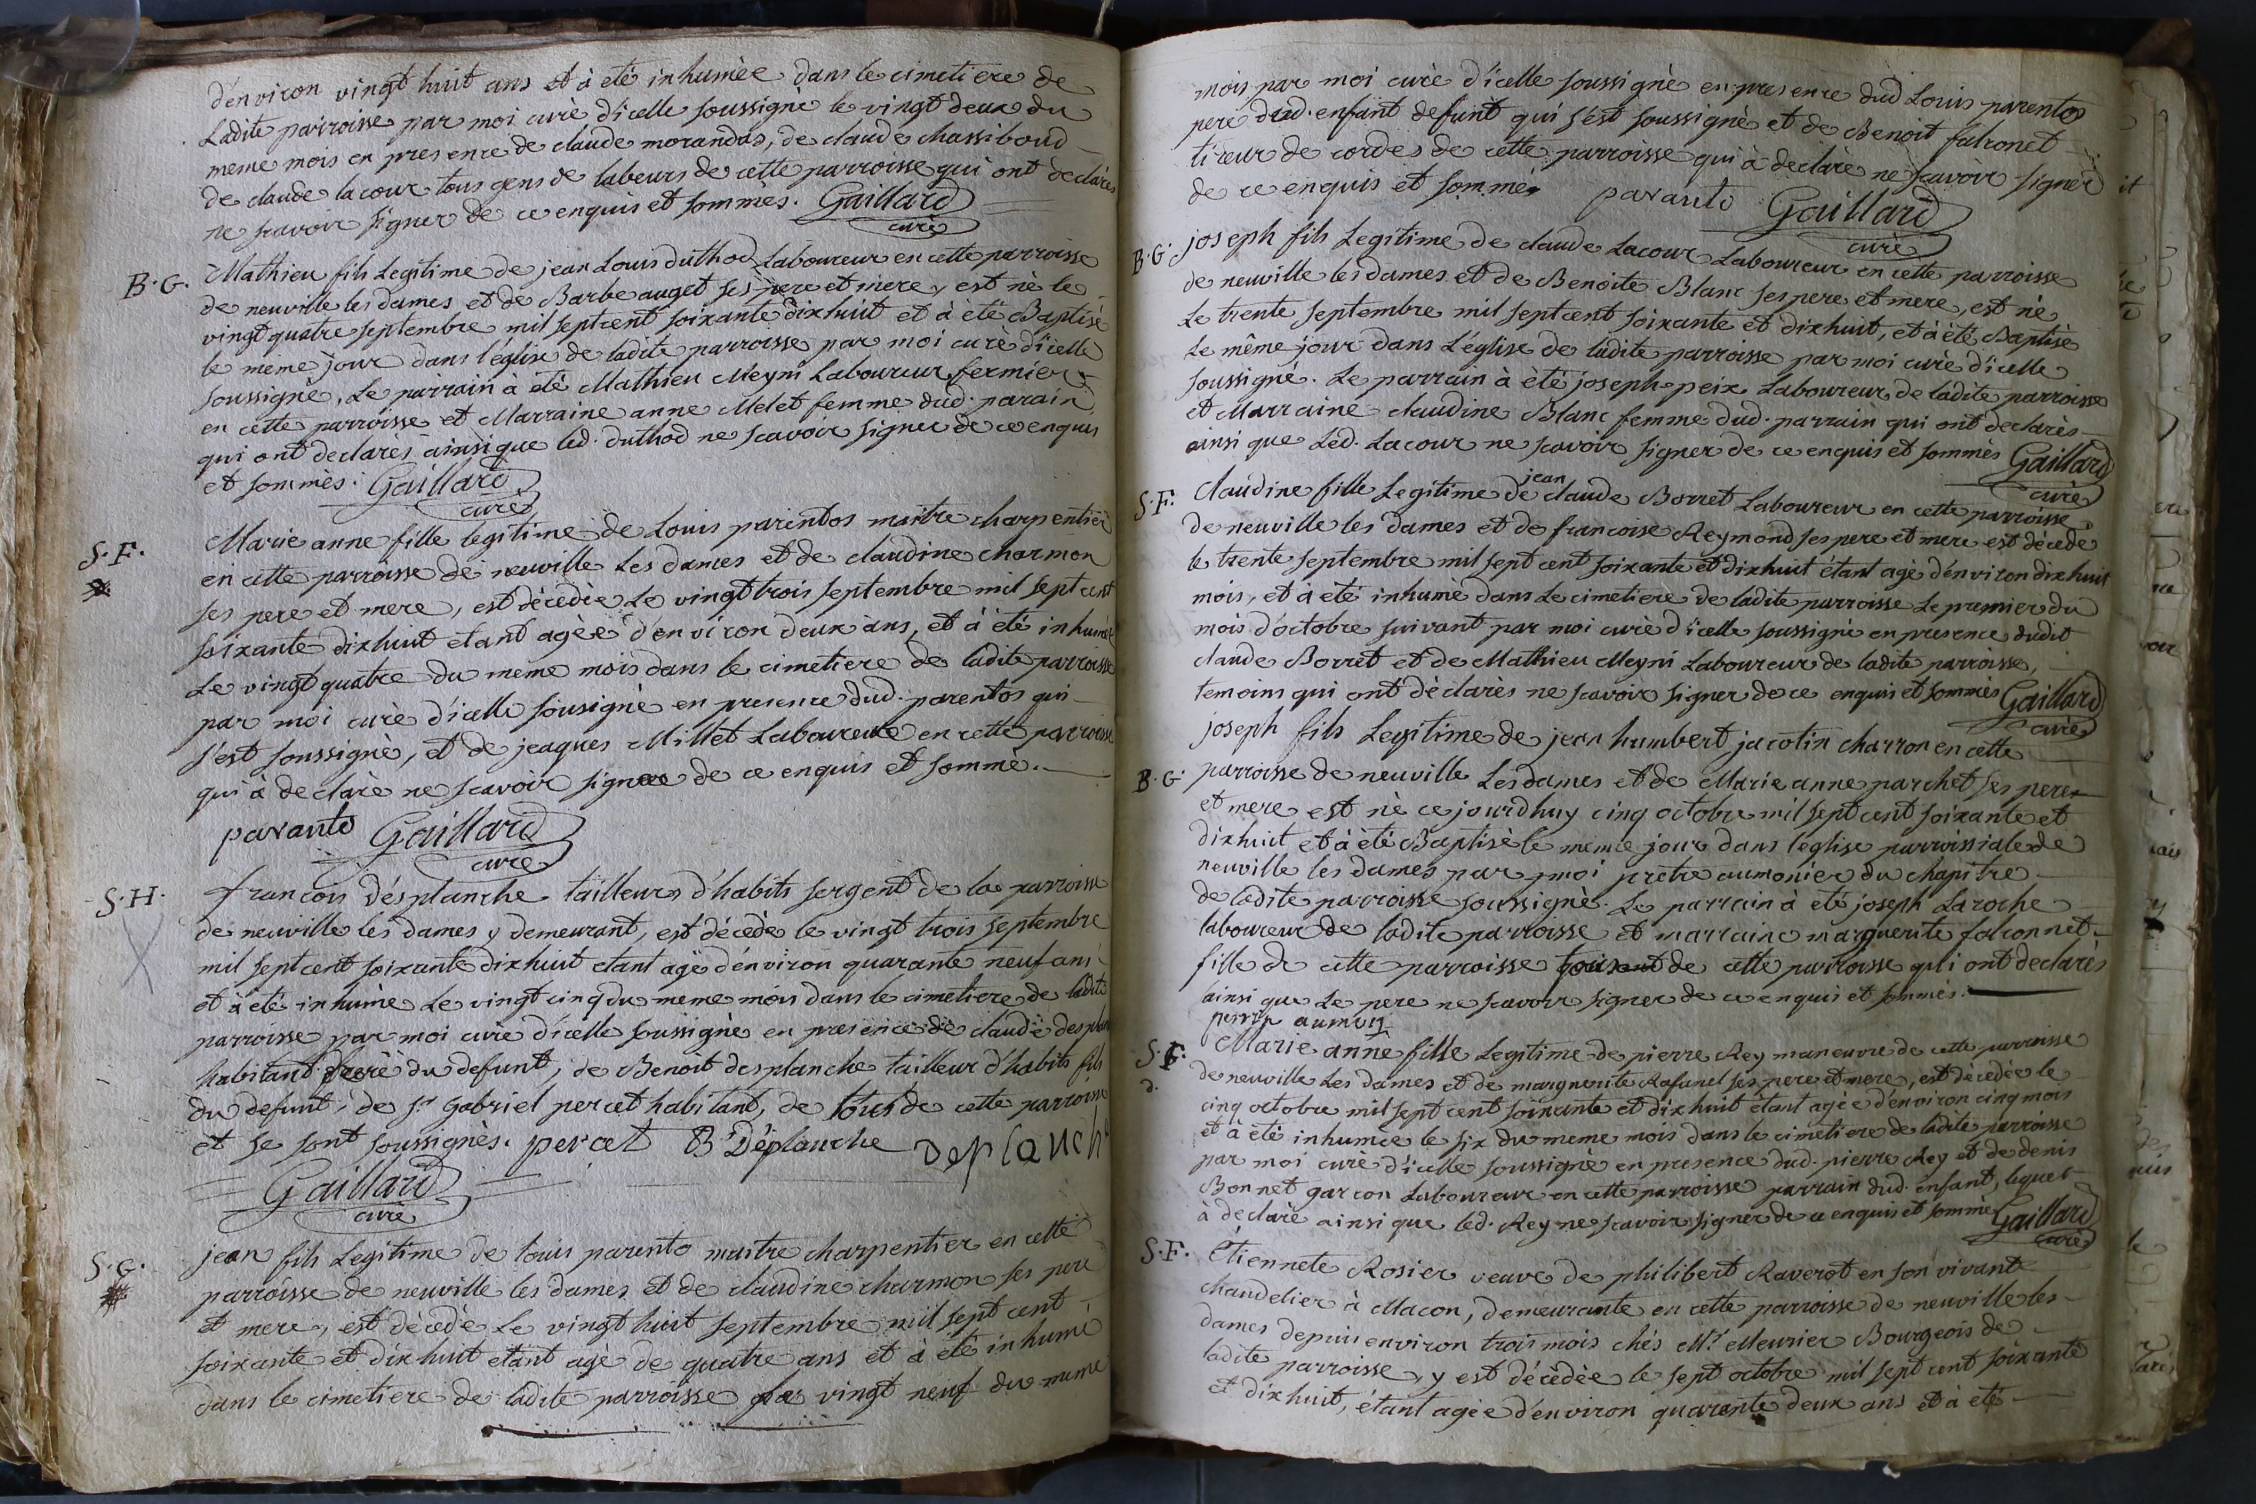 d'environ vingt huit ans et à eté inhumée dans le cimetiere de
Ladite parroisse par moi curé d'icelle soussigné le vingt deux du
meme mois en presence de claude morandas, de claude chassiboud
de claude lacour tous gens de labeurs de cette parroisse qui ont declarés
ne scavoir signer de ce enquis et sommés. Gaillard
curé
B.G. Mathieu fils Legitime de jean Louis duthod Laboureur en cette parroisse
de neuville les dames et de Barbe auget ses pere et mere y est né le
vingt quatre septembre mil sept cent soixante dixhuit et à été Baptisé
le meme jour dans l'église de ladite parroisse par moi curé d'icelle
soussigné, Le parrain à eté Mathieu Meyni Laboureur fermier
en cette parroisse et Marraine anne Melet femme dud. parain
qui ont declarés ainsi que led. duthod ne scavoir signer de ce enquis
et sommés. Gaillard
curé
S.F. Marie anne fille legitime de Louis parentos maitre charpentier
en cette parroisse de neuville Les dames et de claudine charmon
ses pere et mere, est décédée Le vingt trois septembre mil sept cent
soixante dixhuit etant agée d'environ deux ans, et à été inhumée
Le vingt quatre du meme mois dans le cimetiere de ladite parroisse
par moi curé d'icelle sousigné en presence dud. parentos qui
s'est soussigné, et de jeaques Millet Laboureur en cette parroisse
qui à declaré ne scavoir signer de ce enquis et sommé.
paranto Gaillard
curé
S.H. francois désplanche tailleur d'habits sergent de la parroisse
de neuville les dames y demeurant, est décédé le vingt trois septembre
mil sept cent soixante dixhuit etant agé d'environ quarante neuf ans
et à eté inhumé Le vingt cinq du meme mois dans le cimetiere de ladite
parroisse par moi curé d'icelle soussigné en presence de claude desplan
habitant frere du defunt, de Benoit desplanche tailleur d'habits fils
du defunt, de Sr Gabriel percet habitant, de tous de cette parroisse
et se sont soussignés. percet B Déplanche Deplanch
Gaillard
curé
S.G. jean fils Legitime de louis parento maitre charpentier en cette
parroisse de neuville les dames et de claudine charmon ses pere
et mere, est décédé Le vingt huit septembre mil sept cent
soixante et dixhuit etant agé de quatre ans et à été inhumé
dans le cimetiere de ladite parroisse le vingt neuf du meme
mois par moi curé d'icelle soussigné en presence dud Louis parentos
pere dud. enfant defunt qui s'est soussigné et de Benoit falconet
tireur de cordes de cette parroisse qui à declaré ne scavoir signer
de ce enquis et sommé paranto Gaillard
curé
B.G. joseph fils Legitime de claude Lacour Laboureur en cette parroisse
de neuville les dames et de Benoite Blanc ses pere et mere, est né
Le trente septembre mil sept cent soixante et dixhuit, et à été Baptisé
Le même jour dans L'église de ladite parroisse par moi curé d'icelle
soussigné. Le parrain à été joseph peix Laboureur de ladite parroisse
et Marraine claudine Blanc femme dud. parrain qui ont declarés
ainsi que Led. Lacour ne scavoir signer de ce enquis et sommés Gaillard
curé
S.F. Claudine fille Legitime de jean claude Borret Laboureur en cette parroisse
de neuville les dames et de francoise Reymond ses pere et mere est décédé
le trente septembre mil sept cent soixante et dixhuit étant agé d'environ dixhuit
mois, et à eté inhumé dans Le cimetiere de ladite parroisse Le premier du
mois d'octobre suivant par moi curé d'icelle soussigné en presence dudit
claude Borret et de Mathieu Meyni Laboureur de ladite parroisse,
temoins qui ont déclarés ne scavoir signer de ce enquis et sommés Gaillard
curé
joseph fils Legitime de jean humbert jacotin charron en cette
B.G. parroisse de neuville Les dames et de Marie anne parchet ses pere
et mere est né ce jourd'huy cinq octobre mil sept cent soixante et
dixhuit et à été Baptisé le meme jour dans l'église parroissiale de
neuville les dames par moi prêtre aumonier du chapitre
de ladite parroisse soussigné. Le parrain à été joseph Laroche
laboureur de ladite parroisse et marraine marguerite falconnet
fille de cette parroisse de cette parroisse qui ont declarés
ainsi que Le pere ne scavoir signer de ce enquis et sommés.
S.F. Marie anne fille Legitime de pierre Rey maneuvre de cette parroisse
de neuville Les dames et de marguerite Rafanel ses pere et mere, est décédée le
cinq octobre mil sept cent soixante et dixhuit étant agée d'environ cinq mois
et à été inhumée le six du meme mois dans le cimetiere de ladite parroisse
par moi curé d'icelle soussigné en presence dud. pierre Rey et de denis
Bonnet garcon Laboureur en cette parroisse parrain dud. enfant, lequel
à declaré ainsi que led. Rey ne scavoir signer de ce enquis et sommés Gaillard
curé
S.F. Etiennete Rosier veuve de philibert Raverot en son vivant
chandelier à Macon, demeurante en cette parroisse de neuville les
dames depuis environ trois mois chés Mr. Meunier Bourgeois de
ladite parroisse, y est décédée le sept octobre mil sept cent soixante
et dixhuit, étant agée d'environ quarente deux ans et à eté